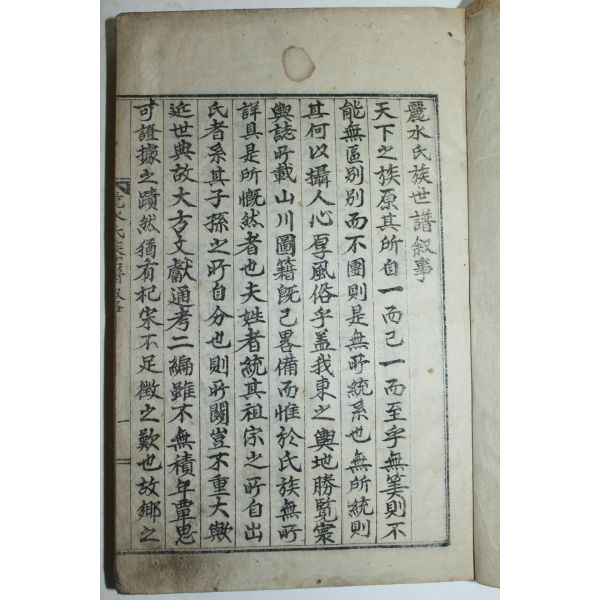 麗水氏族世譜叙事
天下之族原其所自一而已一而至乎無筭則不
能無區別別而不團則是無所統系也無所統則
其何以攝人心厚風俗乎盖我東之輿地勝覽寰
輿誌所載山川圖籍既已畧備而惟於氏族無所
詳具是所慨然者也夫姓者統其祖宗之所自出
氏者系其子孫之所自分也則所關豈不重大歟
近世典故大古文獻通考二編雖不無積年覃思
可證據之蹟然猶有杞宋不足徵之歎也故鄉之
麗水氏族世譜叙事
一